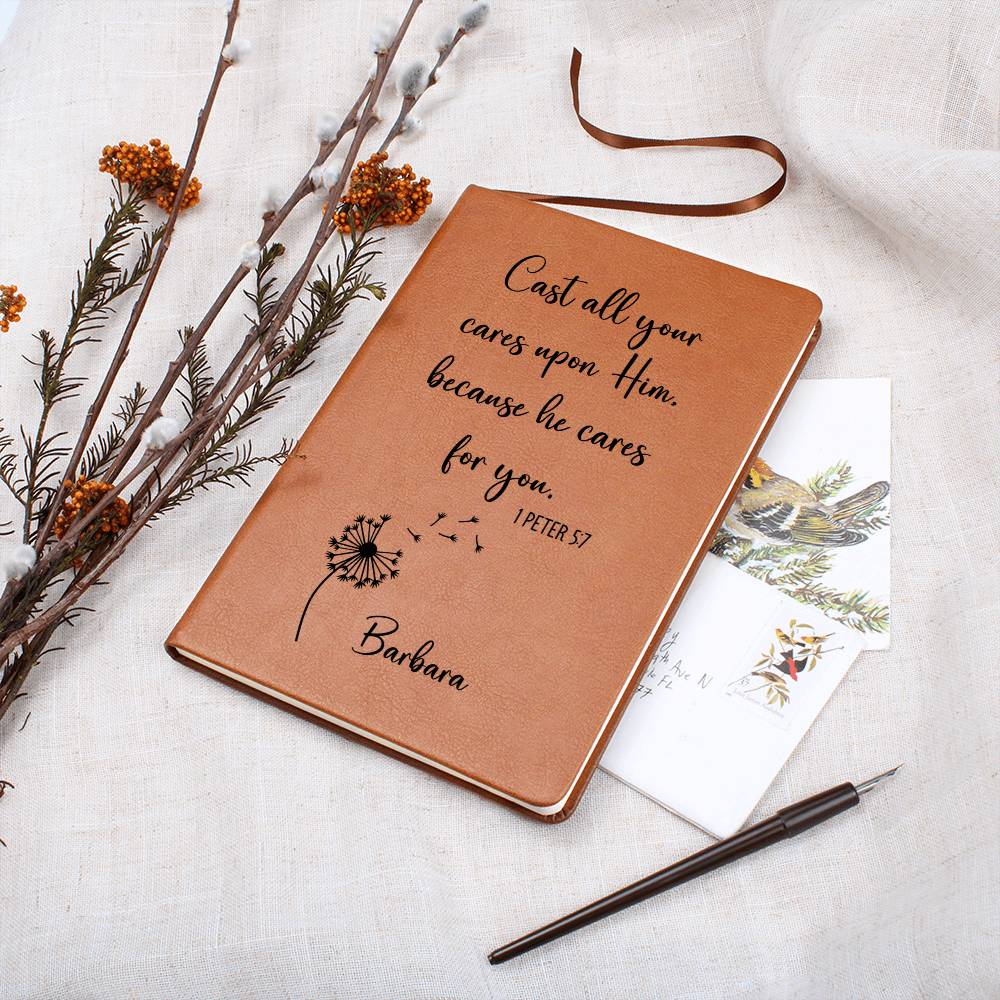 Cast all your
cares upon Him,
because he cares
for you.
1 PETER 5:7
Barbara
Ave N
FL
77